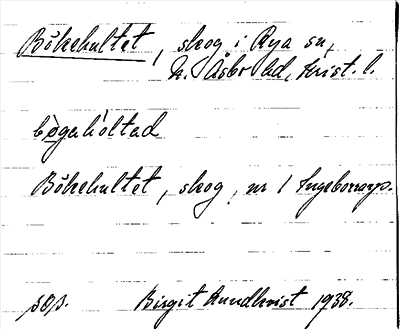 Bökehultet, skog i Rya sn,
N. Åsbo hd, Krist. l.
bögahòltad
Bökehultet, skog, nr 1 Ingeborrarp.
Birgit Lundkvist 1938.